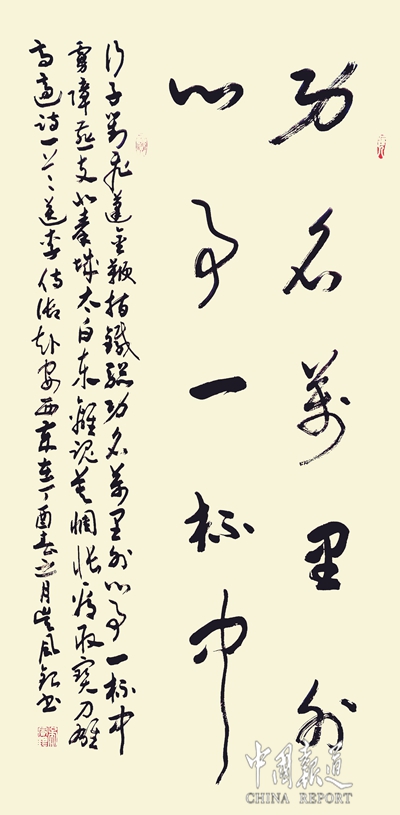 功名萬里外
心事一杯中
行子對飛蓬金鞭指鐵驄功名萬里外心事一杯中
虜障燕支北秦城太白東離魂莫惆悵看取寶刀雄
高適詩一首送李侍御赴安西歲在丁酉春之月風書
中國報道
CHINA REPORT